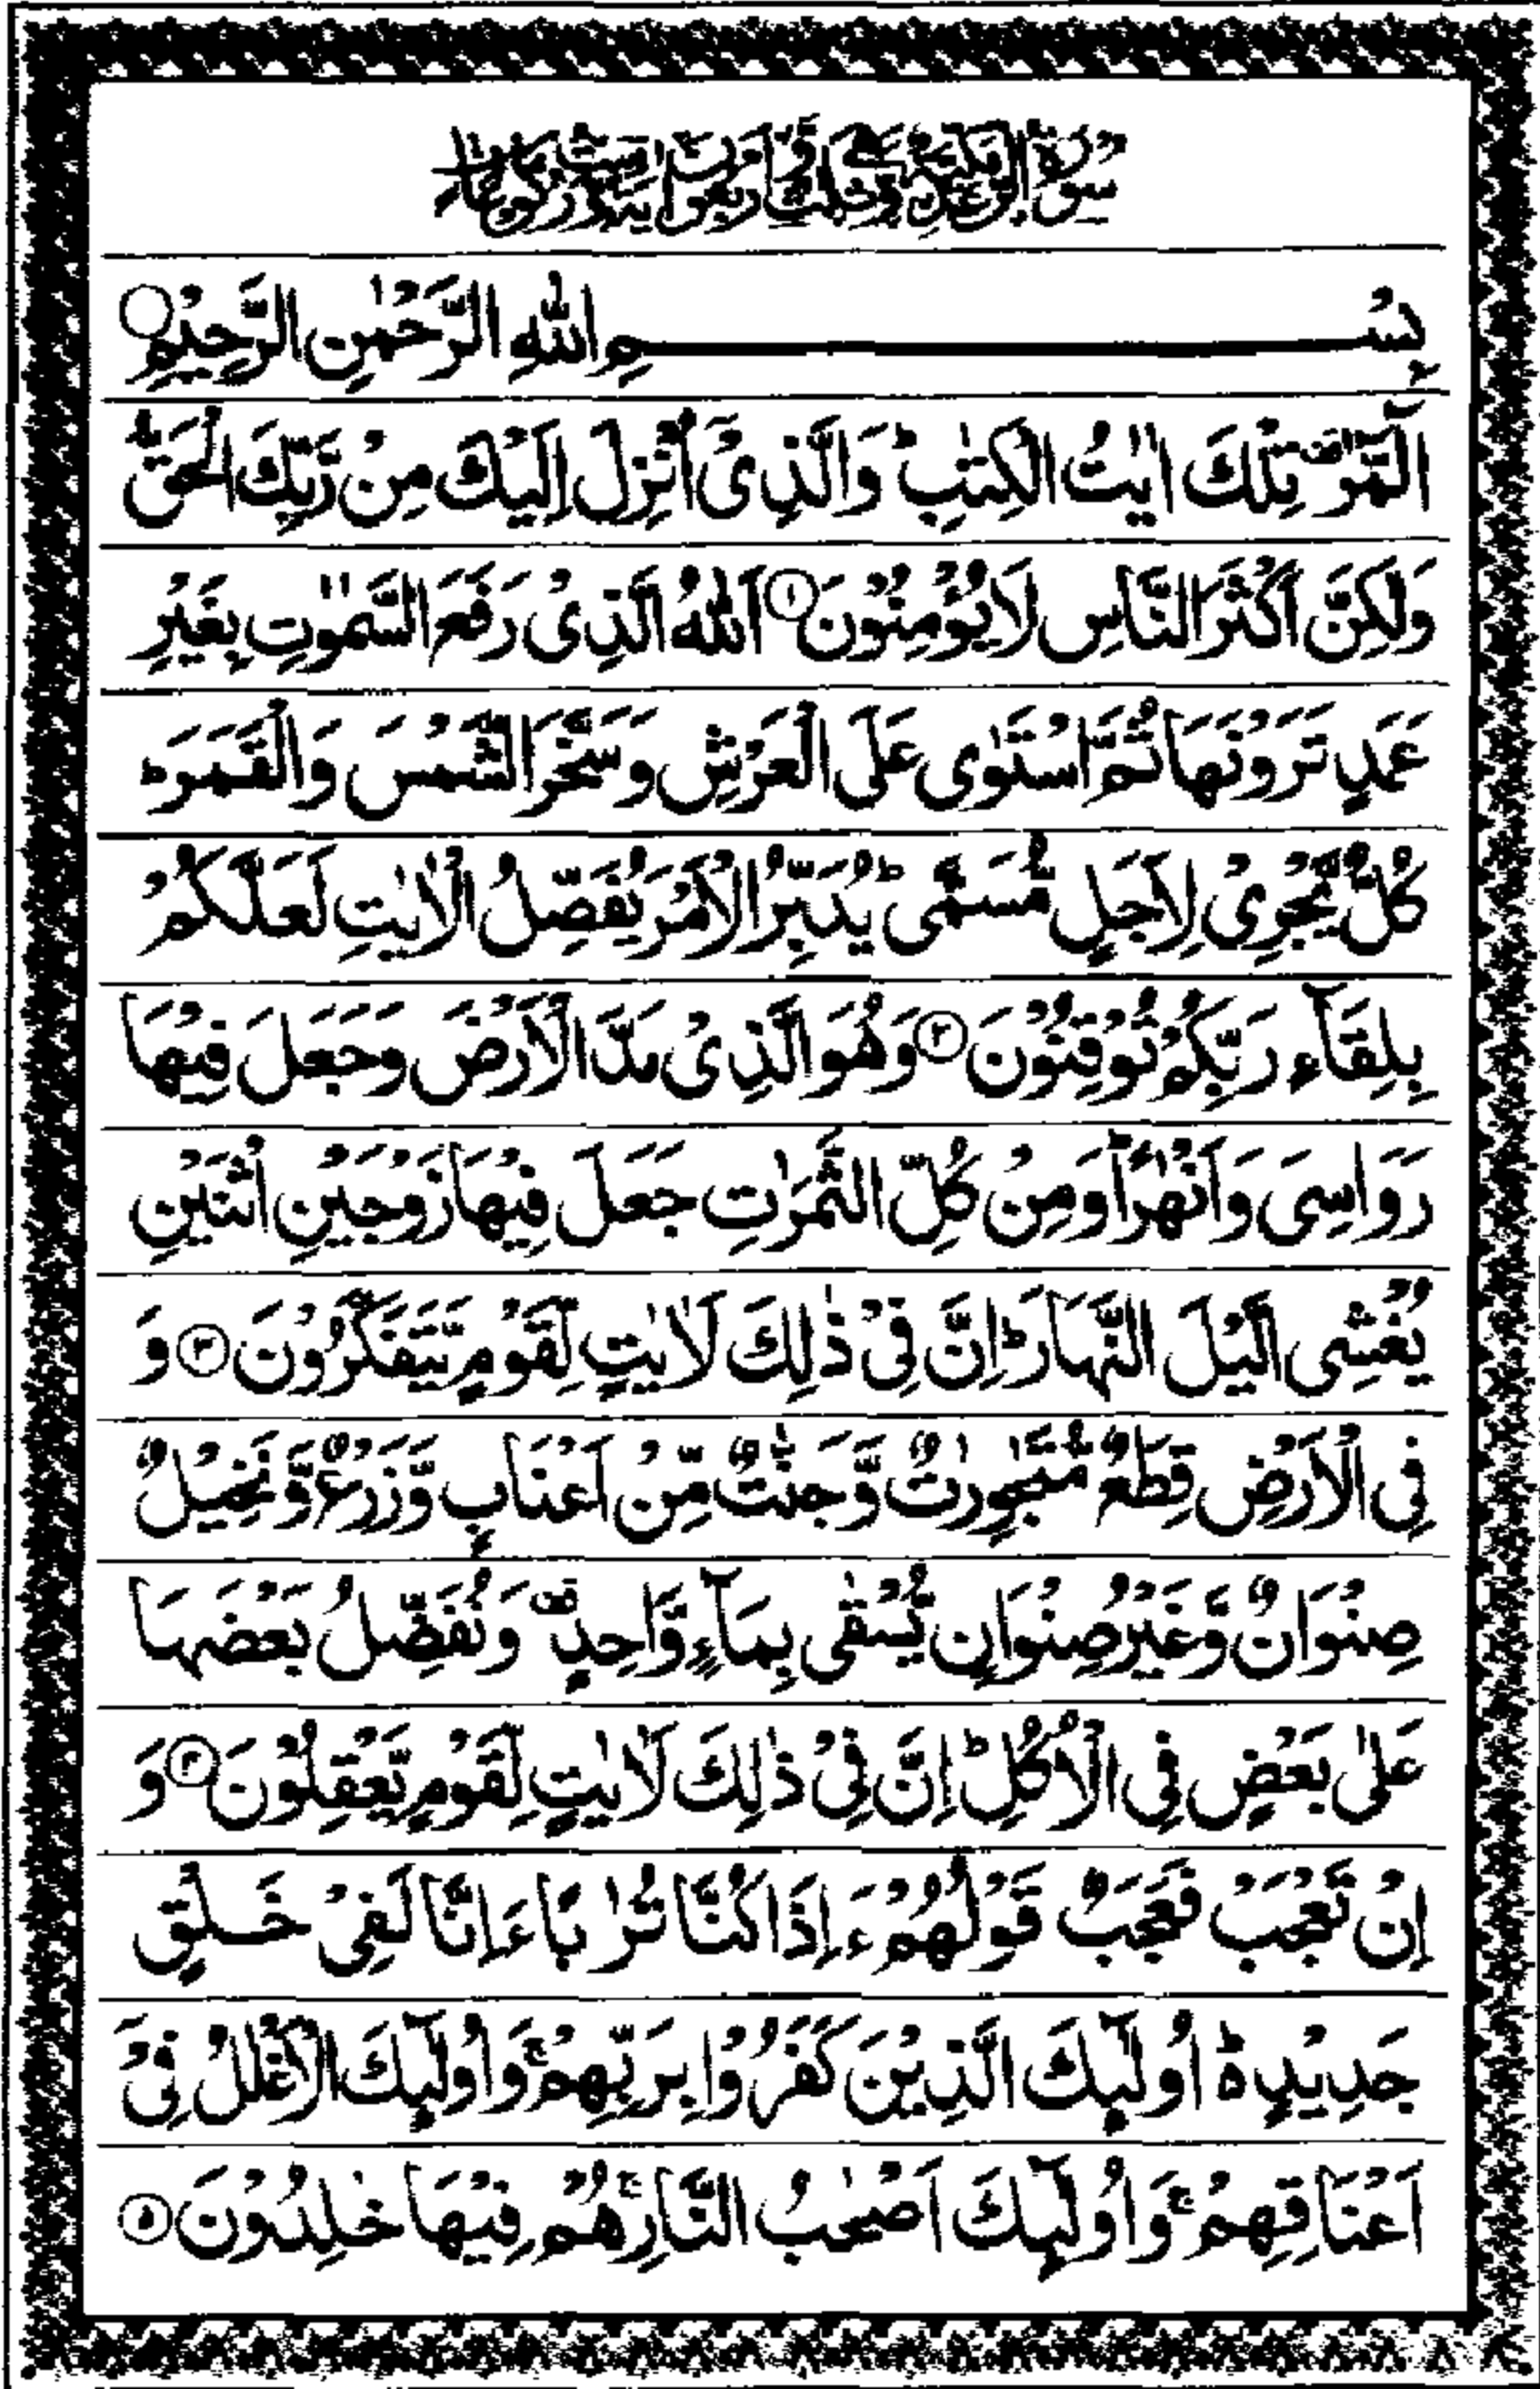 سورة الرعد مكية وهي ثلث واربعون اية وست ركوعات
بِسْمِ اللهِ الرَّحْمٰنِ الرَّحِيْمِ
الٓمّٓرٰ تِلْكَ اٰيٰتُ الْكِتٰبِ ؕ وَالَّذِىْٓ اُنْزِلَ اِلَيْكَ مِنْ رَّبِّكَ الْحَقُّ
وَلٰكِنَّ اَكْثَرَ النَّاسِ لَا يُؤْمِنُوْنَ ۝۱ اَللهُ الَّذِىْ رَفَعَ السَّمٰوٰتِ بِغَيْرِ
عَمَدٍ تَرَوْنَهَا ثُمَّ اسْتَوٰى عَلَى الْعَرْشِ وَسَخَّرَ الشَّمْسَ وَالْقَمَرَ ؕ
كُلٌّ يَّجْرِىْ لِاَجَلٍ مُّسَمًّى ؕ يُدَبِّرُ الْاَمْرَ يُفَصِّلُ الْاٰيٰتِ لَعَلَّكُمْ
بِلِقَآءِ رَبِّكُمْ تُوْقِنُوْنَ ۝۲ وَهُوَ الَّذِىْ مَدَّ الْاَرْضَ وَجَعَلَ فِيْهَا
رَوَاسِىَ وَاَنْهٰرًا ؕ وَمِنْ كُلِّ الثَّمَرٰتِ جَعَلَ فِيْهَا زَوْجَيْنِ اثْنَيْنِ
يُغْشِى الَّيْلَ النَّهَارَ ؕ اِنَّ فِىْ ذٰلِكَ لَاٰيٰتٍ لِّقَوْمٍ يَّتَفَكَّرُوْنَ ۝۳ وَ
فِى الْاَرْضِ قِطَعٌ مُّتَجٰوِرٰتٌ وَّجَنّٰتٌ مِّنْ اَعْنَابٍ وَّزَرْعٌ وَّنَخِيْلٌ
صِنْوَانٌ وَّغَيْرُ صِنْوَانٍ يُّسْقٰى بِمَآءٍ وَّاحِدٍ وَنُفَضِّلُ بَعْضَهَا
عَلٰى بَعْضٍ فِى الْاُكُلِ ؕ اِنَّ فِىْ ذٰلِكَ لَاٰيٰتٍ لِّقَوْمٍ يَّعْقِلُوْنَ ۝۴ وَ
اِنْ تَعْجَبْ فَعَجَبٌ قَوْلُهُمْ ءَاِذَا كُنَّا تُرٰبًا ءَاِنَّا لَفِىْ خَلْقٍ
جَدِيْدٍ ؕ اُولٰٓئِكَ الَّذِيْنَ كَفَرُوْا بِرَبِّهِمْ ۚ وَاُولٰٓئِكَ الْاَغْلٰلُ فِىْٓ
اَعْنَاقِهِمْ ۚ وَاُولٰٓئِكَ اَصْحٰبُ النَّارِ ۚ هُمْ فِيْهَا خٰلِدُوْنَ ۝۵